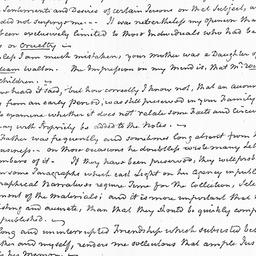 Sentiments and Device of certain Persons on that Subject, a
did not surprize me --- It was nevertheless my opinion tha
been exclusively limited to those Individuals who had be
or Cruelty
less I am much mistaken, your Mother was a Daughter of
Walton. The Impression on my Mind is, that Mr
Children.
heard it said, but how correctly I know not, that an accou
from an early Period, was still preserved in your Family
to examine whether it does not relate some Facts and Circu
may well & properly be added to the Notes.
Father was frequently, and sometimes long absent from
business-- On those occasions he doubtless wrote many Le
members of it. If they have been preserved, they will prob
some Paragraphs which cast Light on his Agency in publi
graphical Narratives require Time for the Collection, Sele
ment of the Materials; and it is more important that
and accurate, than that they should be quickly comp
published.
long and uninterrupted Friendship which subsisted be
ther and myself, renders me sollicitous that ample Jus
to his Memory